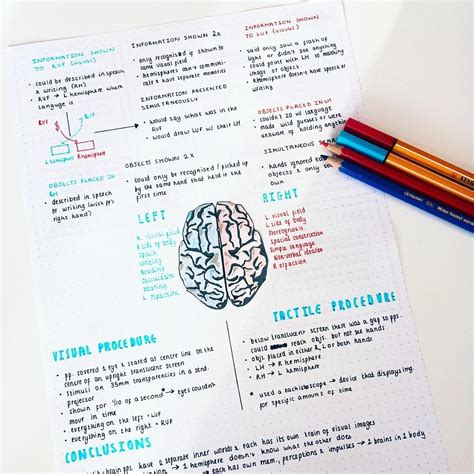 INFORMATION SHOWN
TO RVF (VISUAL)
• could be described in speech
& writing (RH)
• RVF → L hemisphere where
language is
RVF
LVF
L hemisphere
R hemisphere
OBJECTS PLACED IN
RH
• described in speech
or writing (with
right hand)
INFORMATION SHOWN 2x
• only recognised if shown to
same visual field
• hemispheres can't communicate
& have separate memories
INFORMATION PRESENTED
SIMULTANEOUSLY
• would say what was in the
RVF
• would draw LVF w/ their LH
OBJECTS SHOWN 2x
• could only be recognised / picked up
by the same hand that held it the
first time
INFORMATION SHOWN
TO LVF (VISUAL)
• said only saw a flash of
light or didn't see anything
• could point with LH to matching
image or object
• RHemisphere doesn't have speech or
writing
OBJECTS PLACED IN LH
• couldn't ID w/ language
• made wild guesses or were
unaware of holding anything
SIMULTANEOUS
• hands ignored each
objects & only
LEFT
R visual field
R side of body
Speech
Writing
Reading
Calculation
Hearing
L olfaction
RIGHT
L visual field
L side of body
Stereognosis
Spacial construction
Simple language
Non-verbal ideation
R olfaction
VISUAL PROCEDURE
• pp. covered 1 eye & stared at centre line on the
centre of an upright translucent screen
• Stimuli on 35mm transparencies in a stnd.
projector
• shown for 1/10 of a second → eyes couldn't
move in time
• everything on the left = LVF
• everything on the right = RVF
TACTILE PROCEDURE
• below translucent screen there was a gap so pps.
could reach objs. but not see hands
• objs. placed in either R, L or both hands
• LH → R hemisphere
• RH → L hemisphere
• used a tachistoscope → device that displays img.
for specific amount of time
CONCLUSIONS
brain pps. have 2 separate inner worlds & each has its own train of visual images
1 hemisphere doesn't know what the other does
each has own mem., perceptions & impulses → 2 brains in 1 body